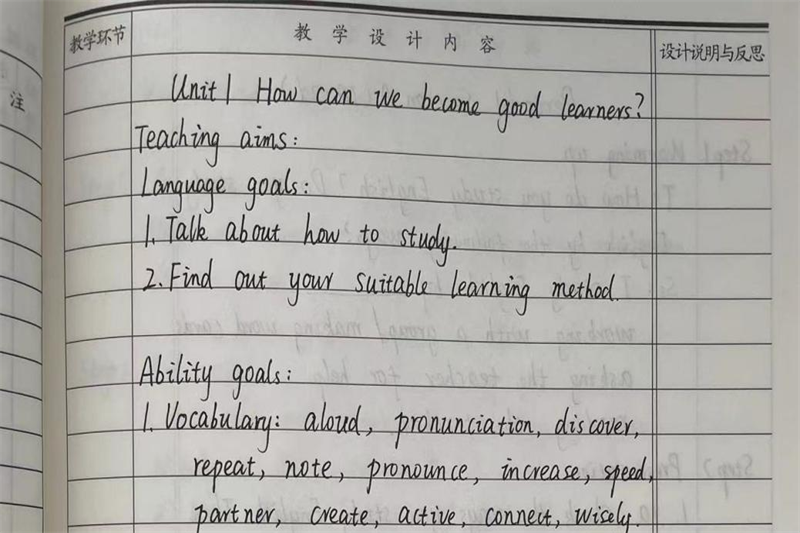 教学环节 教学设计内容 设计说明与反思
注
Unit 1 How can we become good learners?
Teaching aims:
Language goals:
1. Talk about how to study.
2. Find out your suitable learning method.
Ability goals:
1. Vocabulary: aloud, pronunciation, discover,
repeat, note, pronounce, increase, speed,
partner, create, active, connect, wisely.